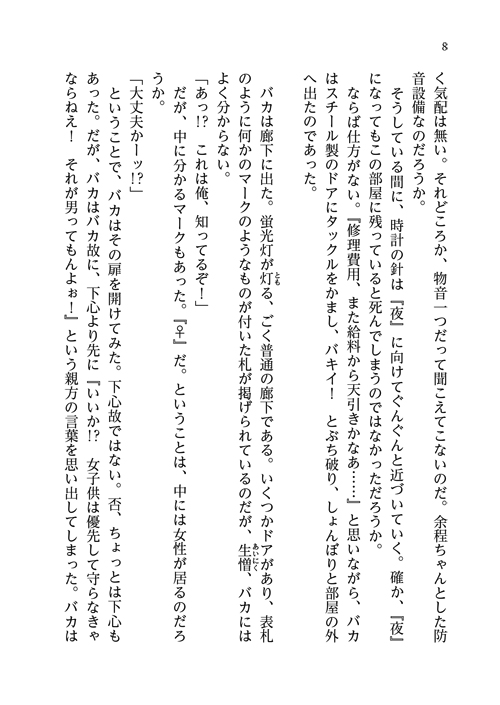 8
く気配は無い。それどころか、物音一つだって聞こえてこないのだ。余程ちゃんとした防
音設備なのだろうか。
そうしている間に、時計の針は『夜』に向けてぐんぐんと近づいていく。確か、『夜』
になってもこの部屋に残っていると死んでしまうのではなかっただろうか。
ならば仕方がない。『修理費用、また給料から天引きかなあ……』と思いながら、バカ
はスチール製のドアにタックルをかまし、バキイ！　とぶち破り、しょんぼりと部屋の外
へ出たのであった。
バカは廊下に出た。蛍光灯が灯ともる、ごく普通の廊下である。いくつかドアがあり、表札
のように何かのマークのようなものが付いた札が掲げられているのだが、生憎あいにく、バカには
よく分からない。
「あっ!?　これは俺、知ってるぞ！」
だが、中に分かるマークもあった。『♀』だ。ということは、中には女性が居るのだろ
うか。
「大丈夫かーッ!?」
ということで、バカはその扉を開けてみた。下心故ではない。否、ちょっとは下心も
あった。だが、バカはバカ故に、下心より先に『いいか!?　女子供は優先して守らなきゃ
ならねえ！　それが男ってもんよぉ！』という親方の言葉を思い出してしまった。バカは